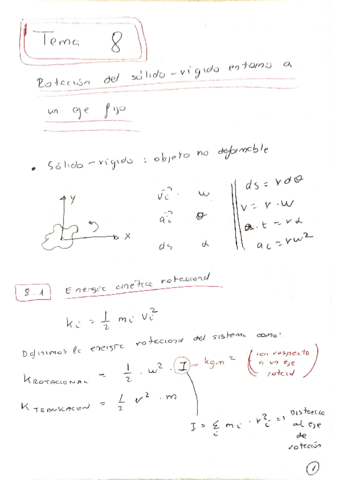 Tema 8
Rotación del sólido-rígido entorno a
un eje fijo
• Sólido-rígido : objeto no deformable
y
x
v⃗i w
a⃗i θ
ds α
ds = r dθ
v = r · w
a · t = r α
ac = r w²
8.1 Energía cinética rotacional
Ki = 1/2 mi vi²
Definimos la energía rotacional del sistema como:
K ROTACIONAL = 1/2 · w² · I → kg·m² (con respecto a un eje rotacid)
K TRANSLACION = 1/2 v² · m
I = Σi mi · ri² => Distancia al eje de rotación
1